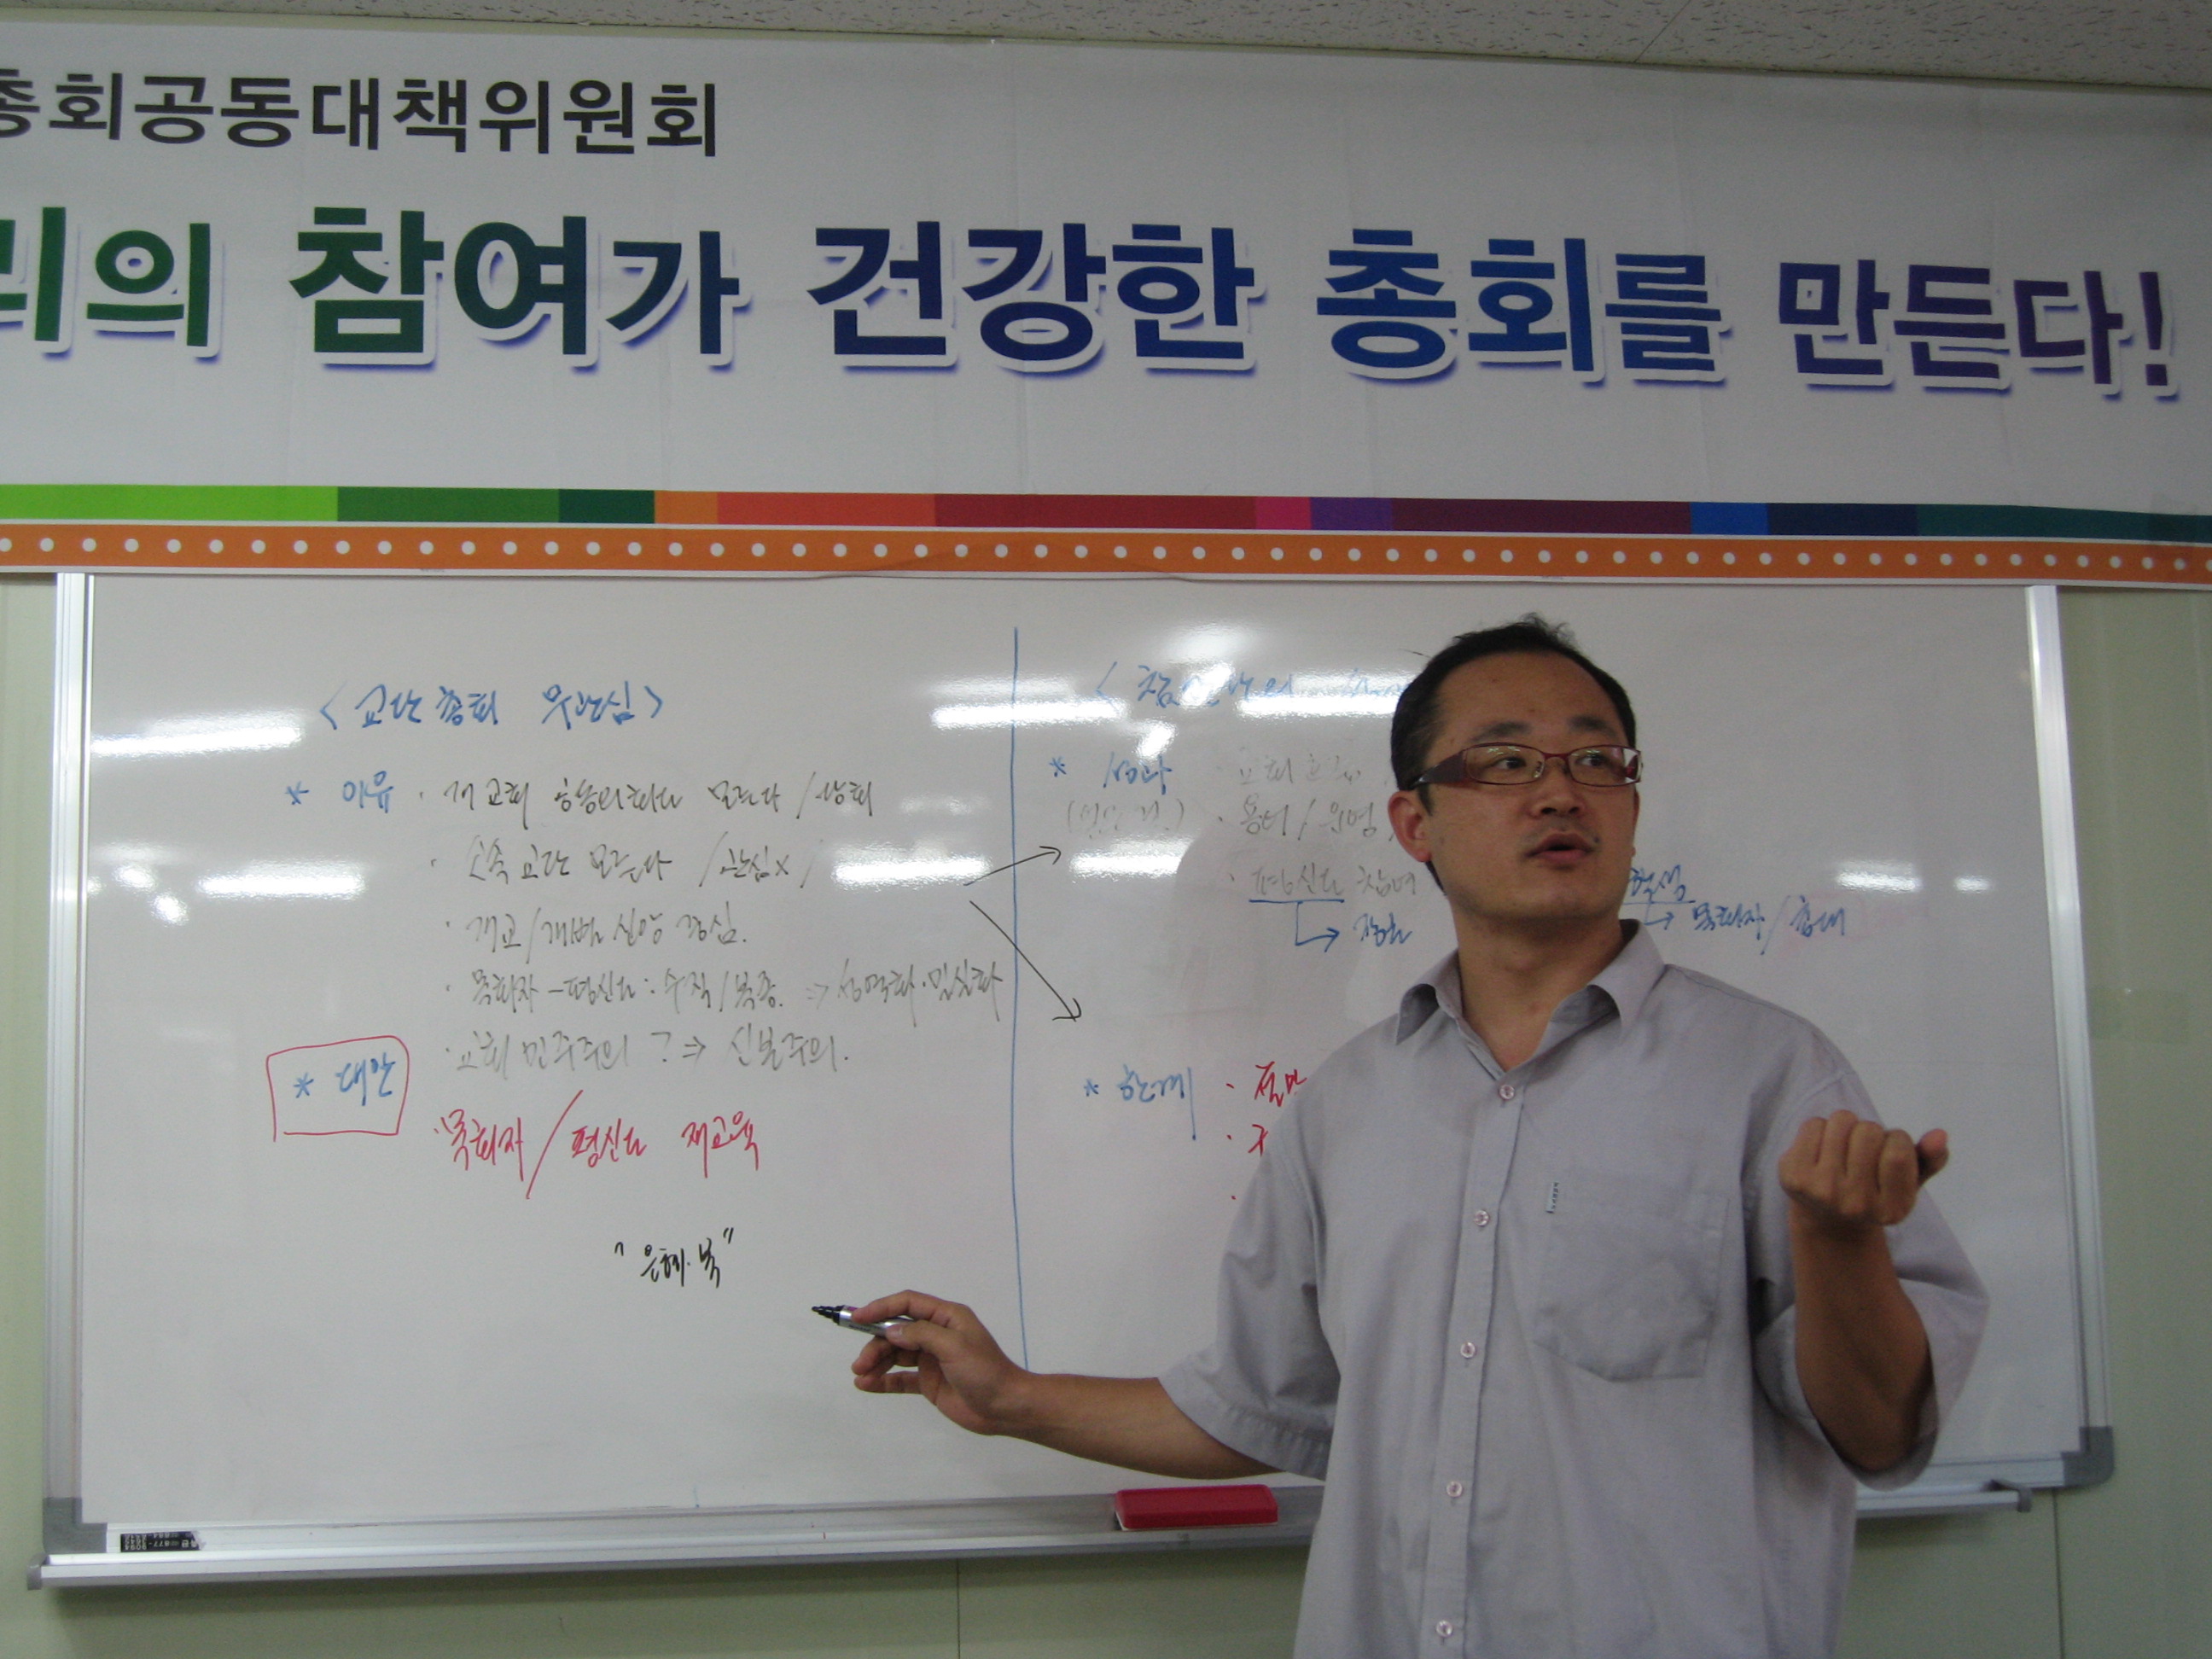 총회공동대책위원회
리의 참여가 건강한 총회를 만든다!
<교단총회 무관심>
* 이유 · 개교회 공동의회도 모른다 /당회
· 소속 교단 모른다 /관심x /
· 개교/개별 신앙 중심.
· 목회자-평신도: 수직/복종. ⇒ 성역화·밀실화
· 교회 민주주의 ? ⇒ 신본주의.
* 대안
· 목회자/평신도 재교육
"은혜·복"
<참관단의
* 성과 · 교회
· 용어/운영
· 평신도 참여
→ 장로
→ 목회자/총대
* 한계